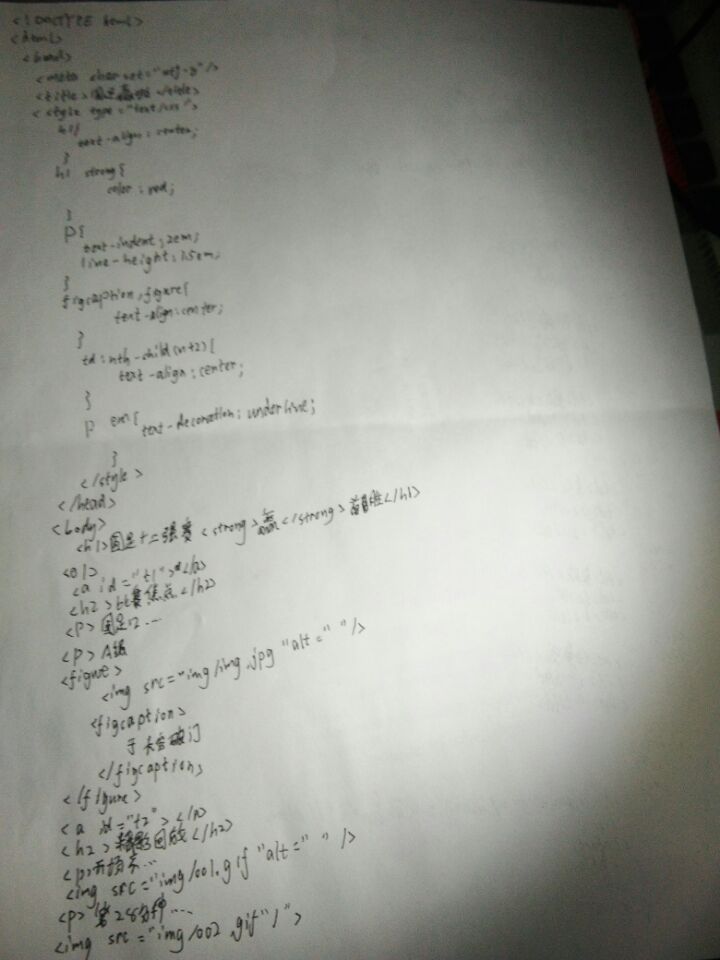 <!DOCTYPE html>
<html>
<head>
<meta charset="utf-8"/>
<title>国足 </title>
<style type="text/css">
h1{
text-align: center;
}
h1 strong{
color: red;
}
p{
text-indent: 2em;
line-height: 1.5em;
}
figcaption, figure{
text-align: center;
}
td:nth-child(n+2){
text-align: center;
}
p em{
text-decoration: underline;
}
</style>
</head>
<body>
<h1>国足十二强赛<strong>赢</strong>韩</h1>
<ol>
<a id="t1"></a>
<h2>比赛焦点</h2>
<p>国足12...
<p>A组
<figure>
<img src="img/img.jpg "alt=" "/>
<figcaption>
于 破门
</figcaption>
</figure>
<a id="t2"></a>
<h2>精彩回放</h2>
<p>开场...
<img src="img/001.gif "alt=" "/>
<p>第28分钟...
<img src="img/002.gif"/">